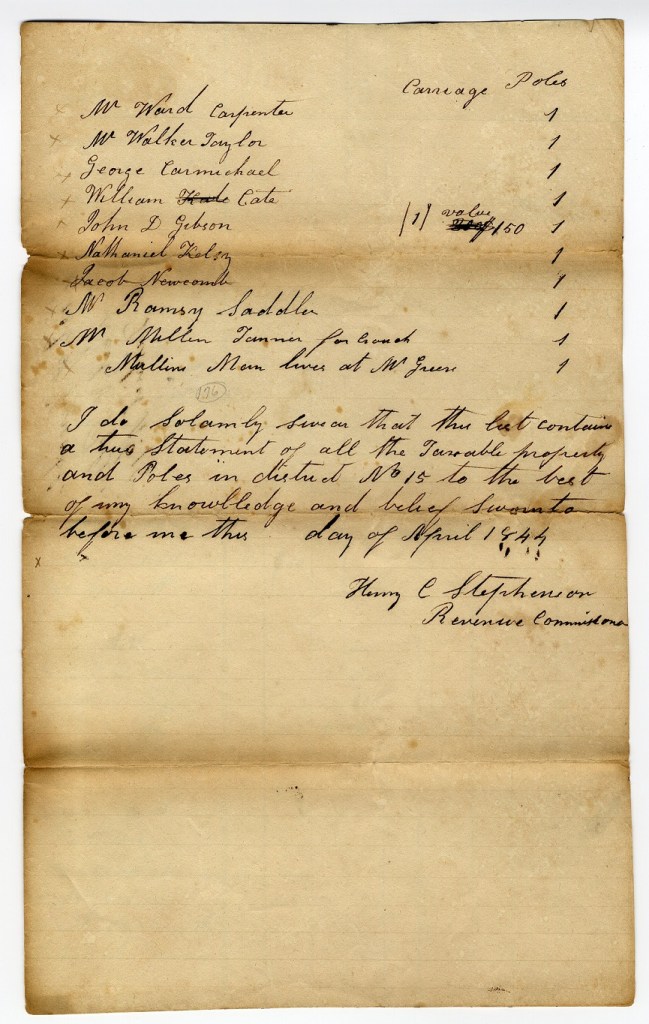 Carriage Poles
Mr Ward Carpenter 1
Mr Walker Taylor 1
George Carmichael 1
William Cate 1
John D Gibson |1| value $150 1
Nathaniel Kelsy 1
Jacob Newcomb 1
Mr Ramsy Saddler 1
Mr Millen Tanner for Crouch 1
Mullins Man lives at Mr Greens 1
176
I do Solamly swear that this list contains
a true Statement of all the Taxable property
and Poles in district No 15 to the best
of my knowlledge and belief Sworn to
before me this day of April 1844
Henry C Stephenson
Revenue Commissioner